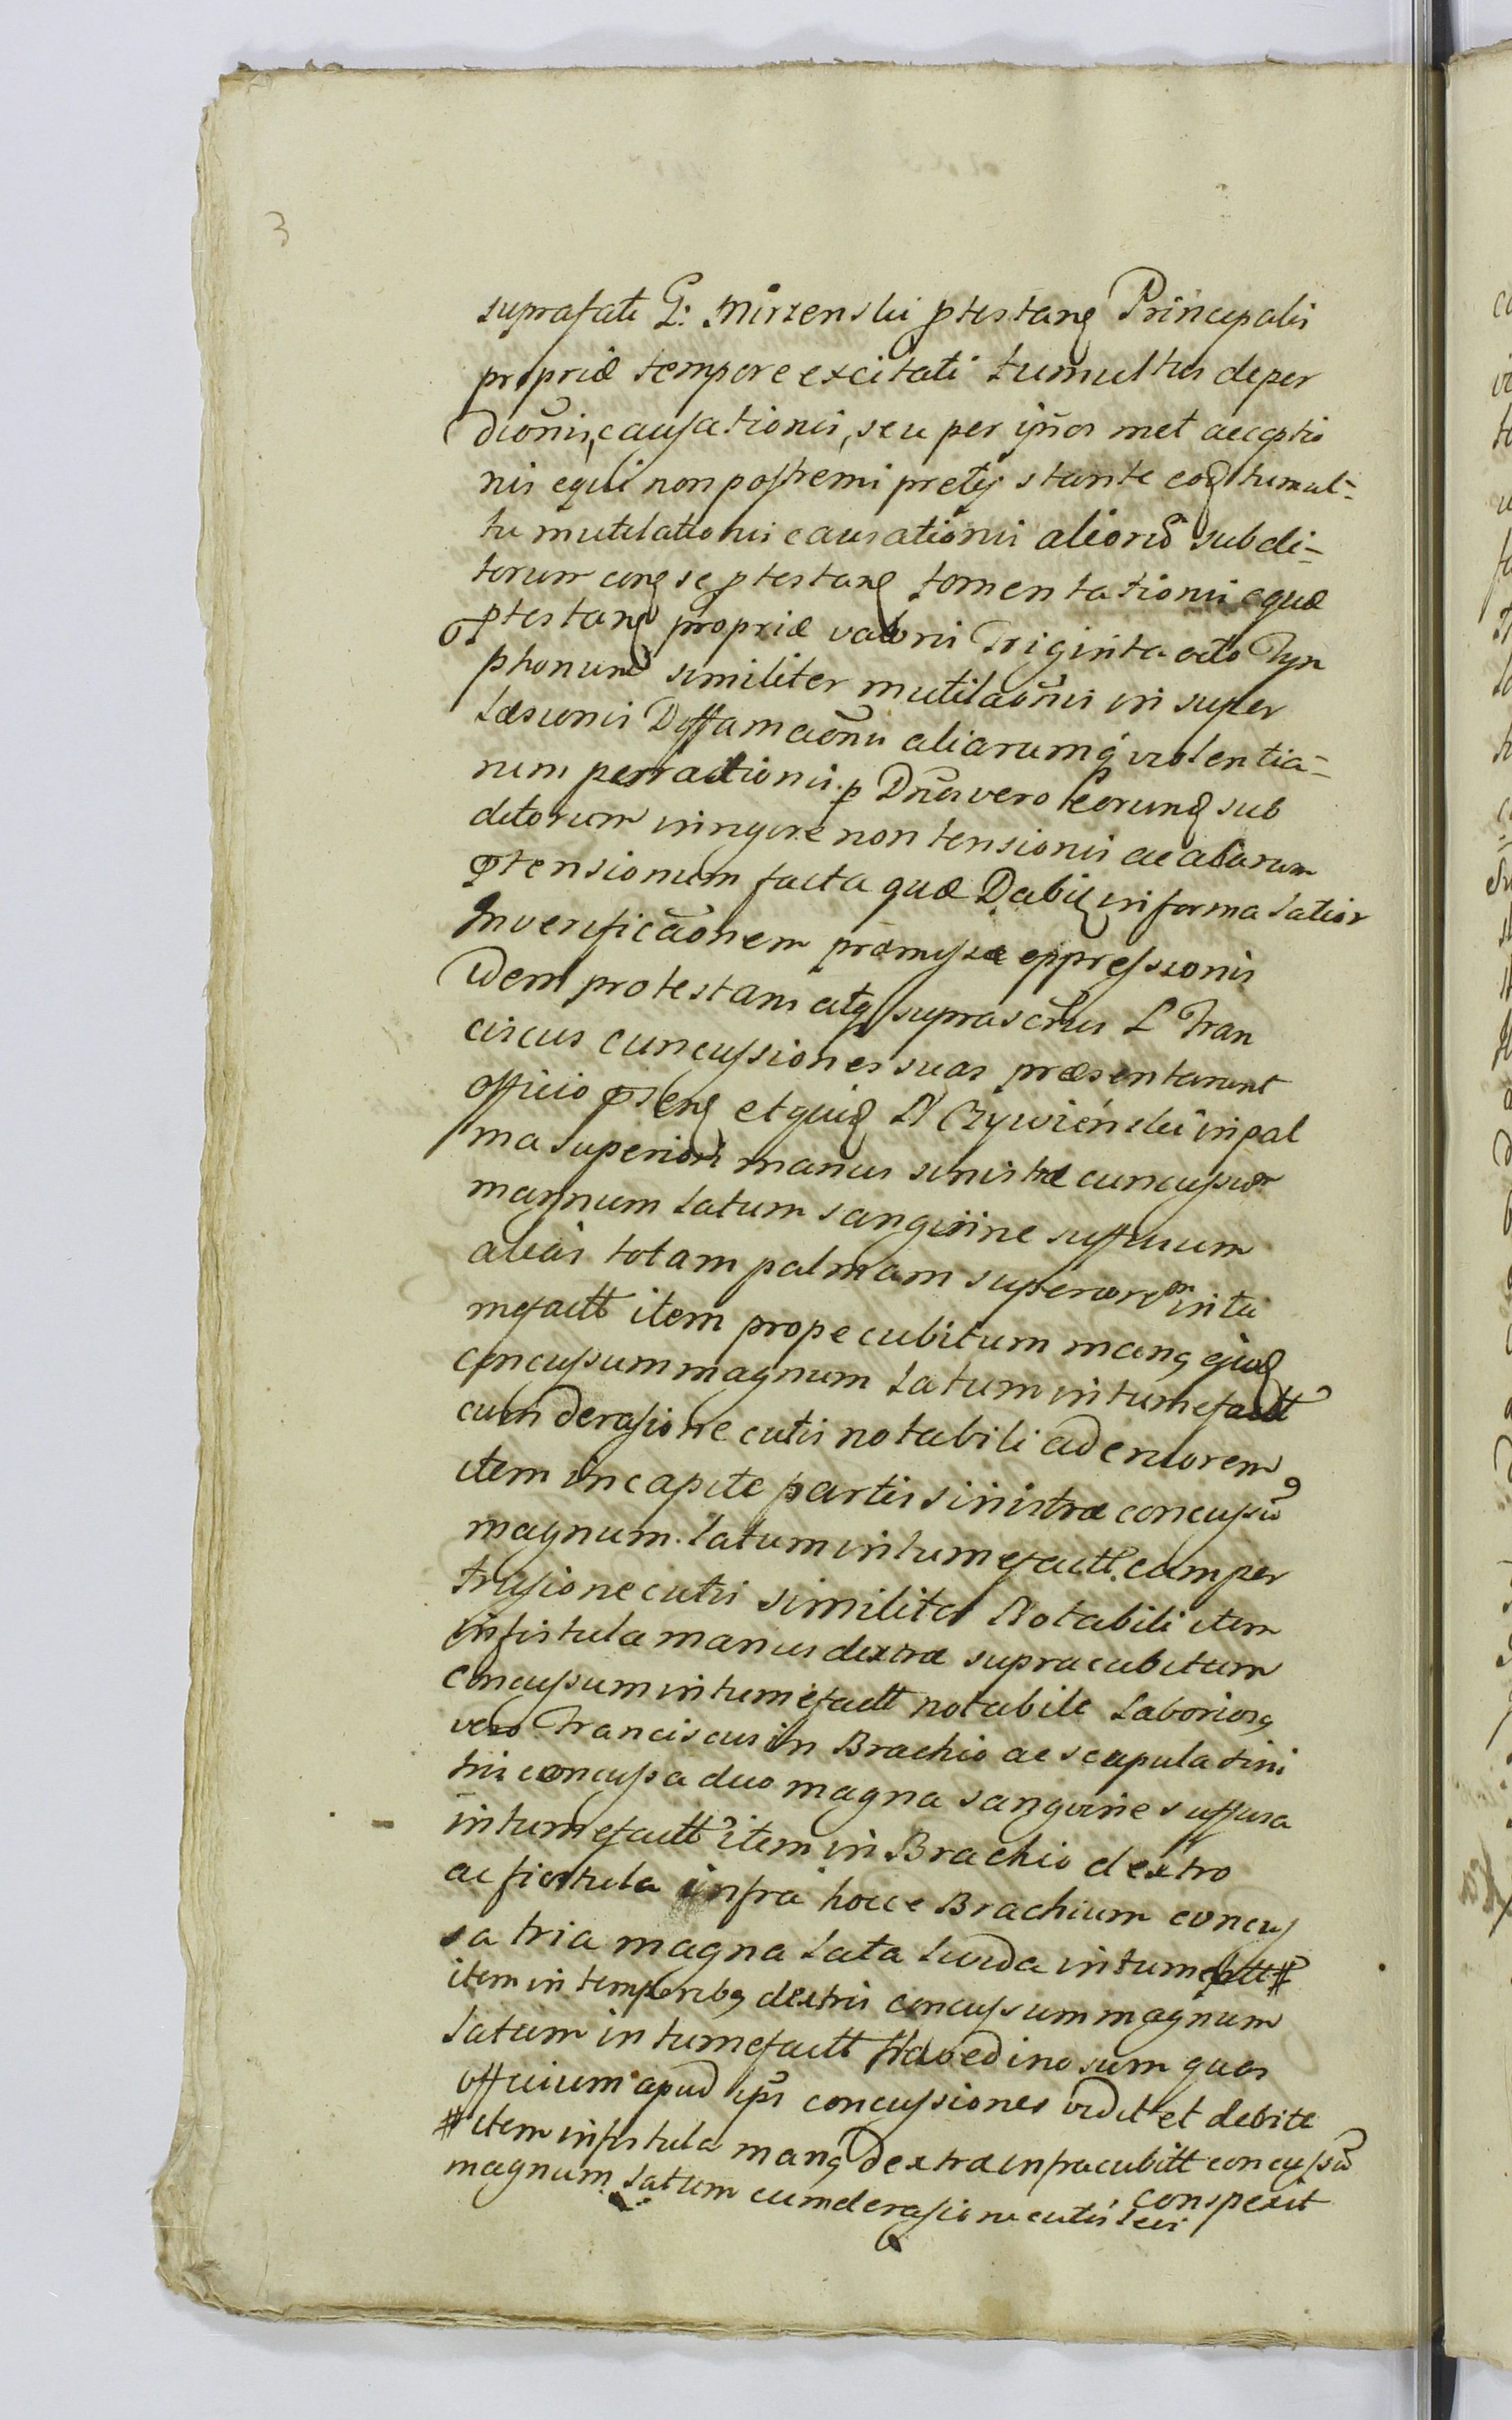 3
suprafati G: Mirzenski ptestang Principalis
propriæ tempore excitati tumultus deper
dioñis, causationis, seu per ipsos met accaptio
nis equi non postremi pretij stante eodq tumul-
tu mutilationis causationis aliorũ subdi-
torum cong se ptestang fomentationis equæ
ptestang propriæ valoris Triginta octo Tyn
phonum similiter mutilaoñis in super
Læsionis Diffamaoñis aliarumq violentia-
rum perractionis p Dnos vero eorung sub
ditorum iningere non tensionis ac aliarum
ptensionum facta quæ Dabit in forma latior
Inverificãonem præmissæ oppressionis
idem protestans atq suprascrus L Fran
ciscus cuncussiones suas præsentarunt
officio pseng et quid N Czywienski in pal
ma superiori manus sinistræ cuncussum
magnum latum sangvine suffusum
alias totam palmam superiorem intu
mefactt item prope cubitum mang ejusd
concussum magnum Latum intumefactt
cum derasione cutis notabili ad cruorem
item in capite partis sinistræ concussũ
magnum latum intumefactt cum per
trusione cutis similiter Notabili item
in fistula manus dextræ supra cubitum
concussum intumefactt notabile Laboriosg
vero Franciscus in Brachio ac scapula sini
tris concussa duo magna sangvine suffusa
intumefactt item in Brachio dextro
ac fistula infra hocce Brachium concus
sa tria magna lata livida intumefctt #
item in temporibg dextris concussum magnum
latum intumefactt flavedinosum quas
officium apud ipsos concussiones vidit et debite
conspexit
# item in fistula mang dextræ infra cubitt concussũ
magnum latum cum derasione cutis levi